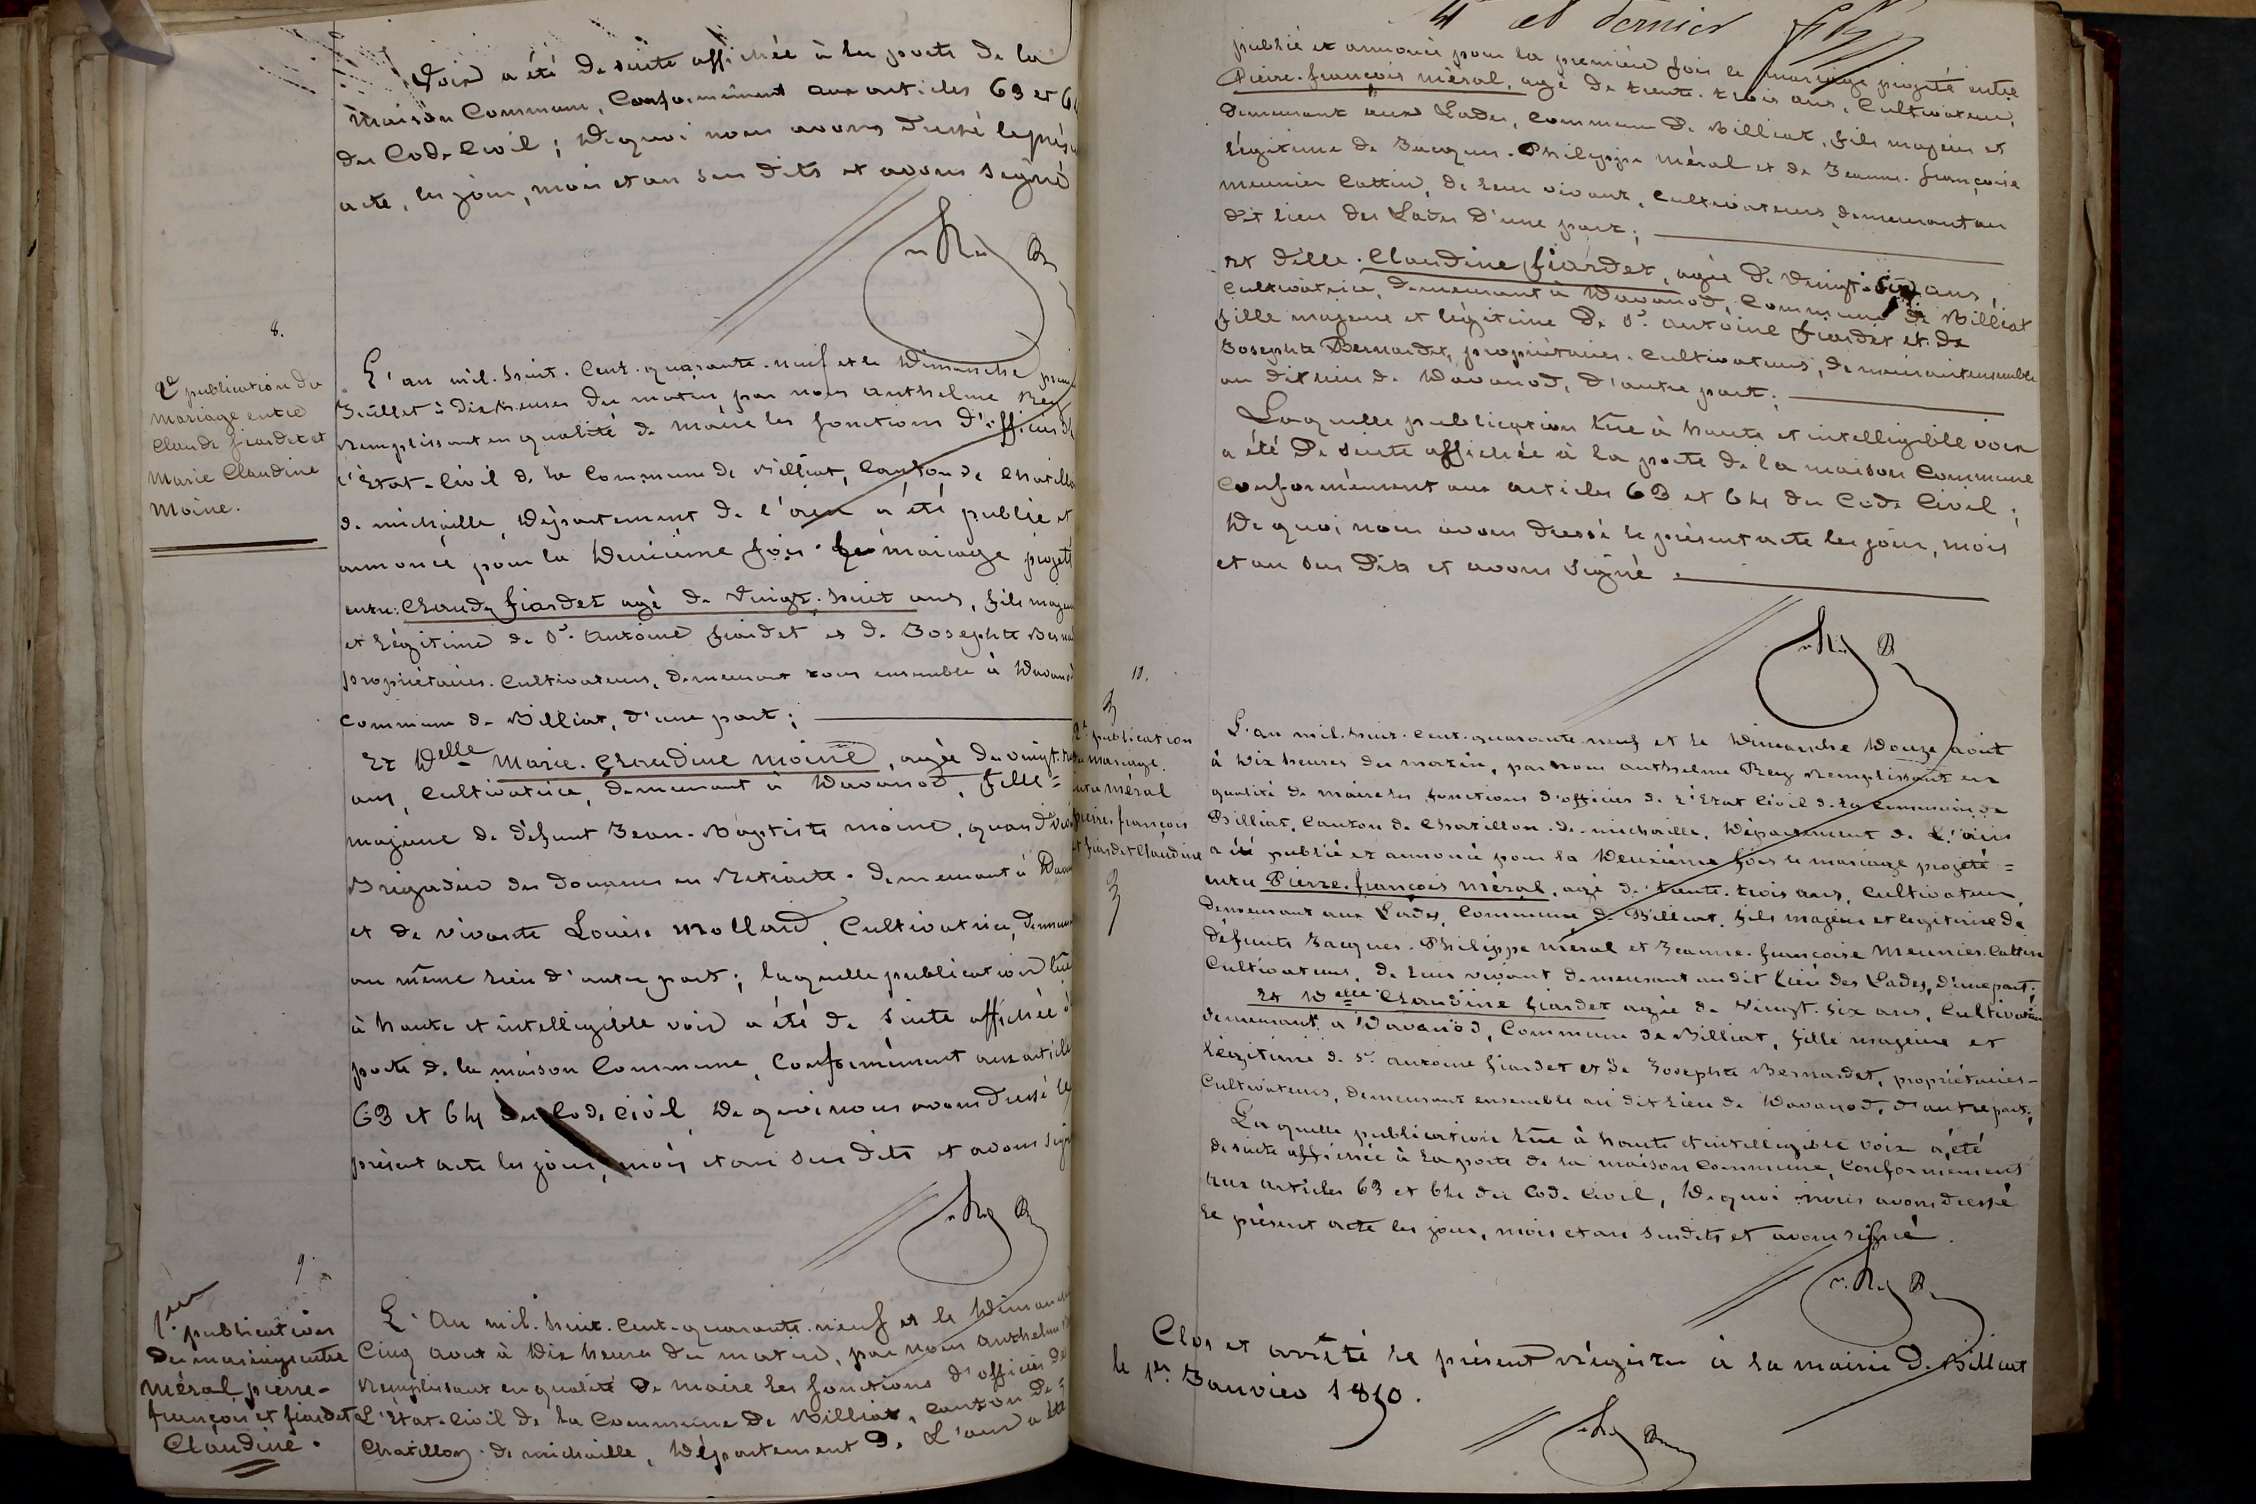 voix a été de suite affichée à la porte de la
maison Commune, Conformément aux articles 63 et 64
du Code Civil ; De quoi nous avons dressé le prés
acte, les jour, mois et an sus dits et avons signé
8.
2e publication du
mariage entre
Claude fiardet et
Marie Claudine
Moine.
L'an mil-huit-cent-quarante-neuf et le Dimanche
Juillet à dix heures du matin, par nous anthelme Rey
remplissant en qualité de maire les fonctions d'officier de
l'Etat-Civil de la Commune de Billiat, Canton de Chatillon
de michaille, Département de l'ain a été publié et
annoncé pour la Deuxième fois le mariage projeté
entre: Claude fiardet agé de vingt-huit ans, fils majeur
et légitime de Sr. Antoine fiardet et de Josephte Berna
propriétaires-Cultivateurs, demeurant tous ensemble à Davanod
Commune de Billiat, d'une part ;
Et Delle Marie-Claudine moine, agée de vingt-
ans, Cultivatrice, demeurant à Davanod, fille=
majeure de défunt Jean-Baptiste moine, quand vivait
Brigadier des Douanes en Retraite - demeurant à Davan
et de vivante Louise Mollard, Cultivatrice, demeu
au même lieu d'autre part ; laquelle publication lue
à haute et intelligible voix a été de suite affichée à
porte de la maison Commune, Conformément aux articles
63 et 64 du Code Civil, De quoi nous avons dressé le
présent acte les jour, mois et an sus dits et avons sign
9.
1ère publication
du mariage entre
Méral pierre-
françois et fiardet
Claudine.
L'An mil-huit-cent-quarante-neuf et le Dimanche
Cinq aout à Dix heures du matin, par nous anthelme
Remplissant en qualité de maire les fonctions d'officier de
L'Etat-Civil de la Commune de Billiat, canton de
Chatillon-de-michaille, Département de L'ain a été
4e et dernier
publié et annoncé pour la première fois le mariage projeté entre
Pierre-françois méral, agé de trente-trois ans, Cultivateur,
demeurant aux Lades, Commune de Billiat, fils majeur et
légitime de Jacques-Philippe Méral et de Jeanne-françoise
meunier Cattin, de leur vivant, Cultivateurs demeurant au
dit lieu des Lades d'une part ;
Et delle. Claudine fiardet, agée de vingt-six ans,
Cultivatrice, demeurant à Davanod, Commune de Billiat
fille majeure et légitime de Sr. antoine fiardet et de
Josephte Bernardet, propriétaires-Cultivateurs, demeurant ensemble
au dit lieu de Davanod, d'autre part.
Laquelle publication lue à haute et intelligible voix
a été de suite affichée à la porte de la maison Commune
Conformément aux articles 63 et 64 du Code Civil ;
De quoi nous avons dressé le présent acte les jour, mois
et an sus dits et avons signé
10.
2e publication
du mariage
entre méral
pierre françois
et fiardet Claudine
L'an mil-huit-cent-quarante-neuf et le Dimanche Douze août
à Dix heures du matin, par nous anthelme Rey Remplissant en
qualité de maire les fonctions d'officier de l'Etat Civil de la Commune de
Billiat, Canton de Chatillon-de-michaille, Département de L'ain
a été publié et annoncé pour la Deuxième fois le mariage projeté=
entre Pierre-françois Méral, agé de trente-trois ans, Cultivateur,
demeurant aux Lades, Commune de Billiat, fils majeur et legitime de
défunts Jacques-Philippe Méral et Jeanne-francoise Meunier-Cattin
Cultivateurs, de leur vivant demeurant au dit lieu des Lades, d'une part ;
Et Delle Claudine fiardet agée de vingt-six ans, Cultivatrice
demeurant à Davanod, Commune de Billiat, fille majeure et
légitime de Sr. antoine fiardet et de Josephte Bernardet, propriétaires-
Cultivateurs, demeurant ensemble au dit lieu de Davanod, d'autre part ;
Laquelle publication lue à haute et intelligible voix a été
de suite affichée à la porte de la maison Commune, Conformément
aux articles 63 et 64 du Code Civil, De quoi nous avons dressé
le présent acte les jour, mois et an susdits et avons signé.
Clos et arrêté le présent régistre à la mairie de Billiat
le 1er Janvier 1850.